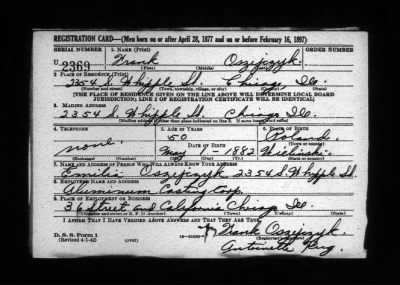 REGISTRATION CARD—(Men born on or after April 28, 1877 and on or before February 16, 1897)
SERIAL NUMBER 1. NAME (Print) ORDER NUMBER
U 2369 Frank Oszejczyk
(First) (Middle) (Last)
2. PLACE OF RESIDENCE (Print)
2354 S. Whipple St. Chicago Ill.
(Number and street) (Town, township, village, or city) (County) (State)
[THE PLACE OF RESIDENCE GIVEN ON THE LINE ABOVE WILL DETERMINE LOCAL BOARD
JURISDICTION; LINE 2 OF REGISTRATION CERTIFICATE WILL BE IDENTICAL]
3. MAILING ADDRESS
2354 S. Whipple St. Chicago Ill.
(Mailing address if other than place indicated on line 2. If same insert word same)
4. TELEPHONE 5. AGE IN YEARS 6. PLACE OF BIRTH
50 Poland
none DATE OF BIRTH
May 1 - 1882
(Exchange) (Number) (Mo.) (Day) (Yr.) (State or country)
7. NAME AND ADDRESS OF PERSON WHO WILL ALWAYS KNOW YOUR ADDRESS
Emilia Oszejczyk 2354 S Whipple St.
8. EMPLOYER'S NAME AND ADDRESS
Aluminum Casting Corp.
9. PLACE OF EMPLOYMENT OR BUSINESS
36 Street and California Chicago Ill.
(Number and street or R. F. D. number) (Town) (County) (State)
I AFFIRM THAT I HAVE VERIFIED ABOVE ANSWERS AND THAT THEY ARE TRUE.
D. S. S. Form 1 Frank Oszejczyk
(Revised 4-1-42) (over) (Registrant's signature)
Antoinette